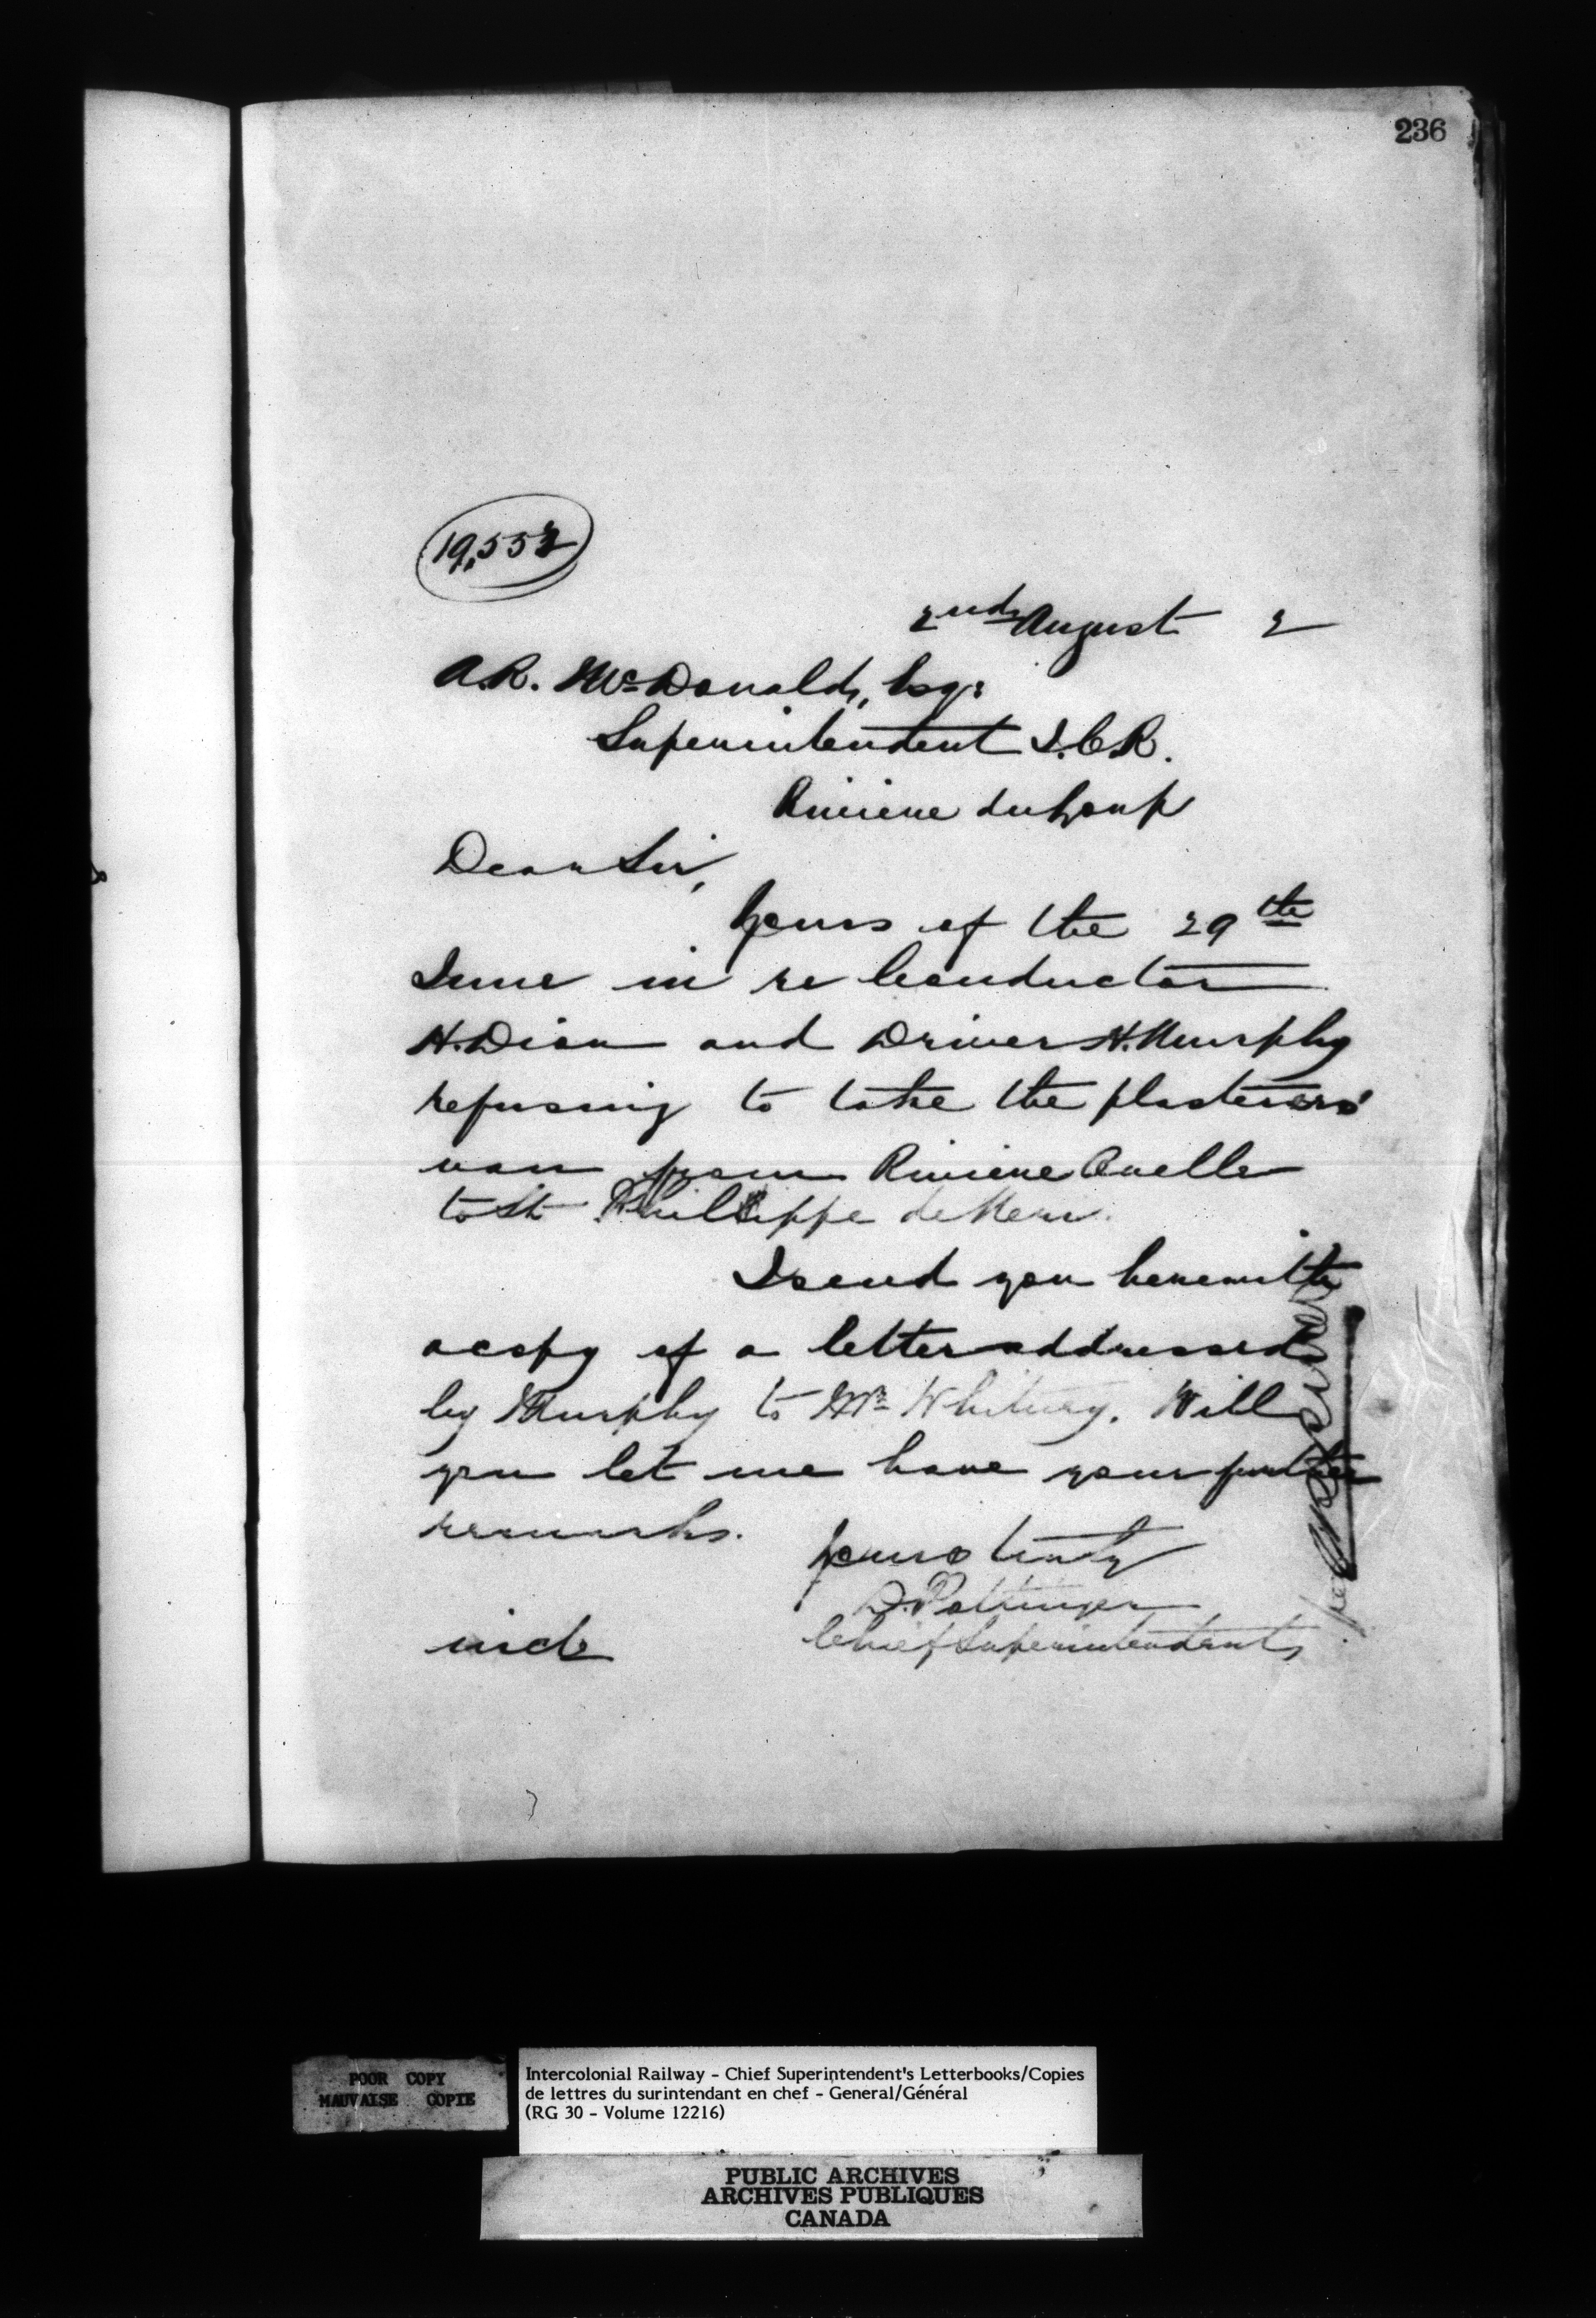 236
19,552
2nd August 2
A.R. McDonald, Esq:
Superintendent I.C.R.
Riviere du Loup
Dear Sir,
Yours of the 29th
June in re Conductor
H. Dion and Driver H. Murphy
refusing to take the plasterers'
van from Riviere Ouelle
to St Phillippe de Neri.
I send you herewith
a copy of a letter addressed
by Murphy to Mr Whitney. Will
you let me have your further
remarks.
Yours truly
D. Pottinger
Chief Superintendent
incl
per
POOR COPY
MAUVAISE COPIE
Intercolonial Railway - Chief Superintendent's Letterbooks/Copies
de lettres du surintendant en chef - General/Général
(RG 30 - Volume 12216)
PUBLIC ARCHIVES
ARCHIVES PUBLIQUES
CANADA